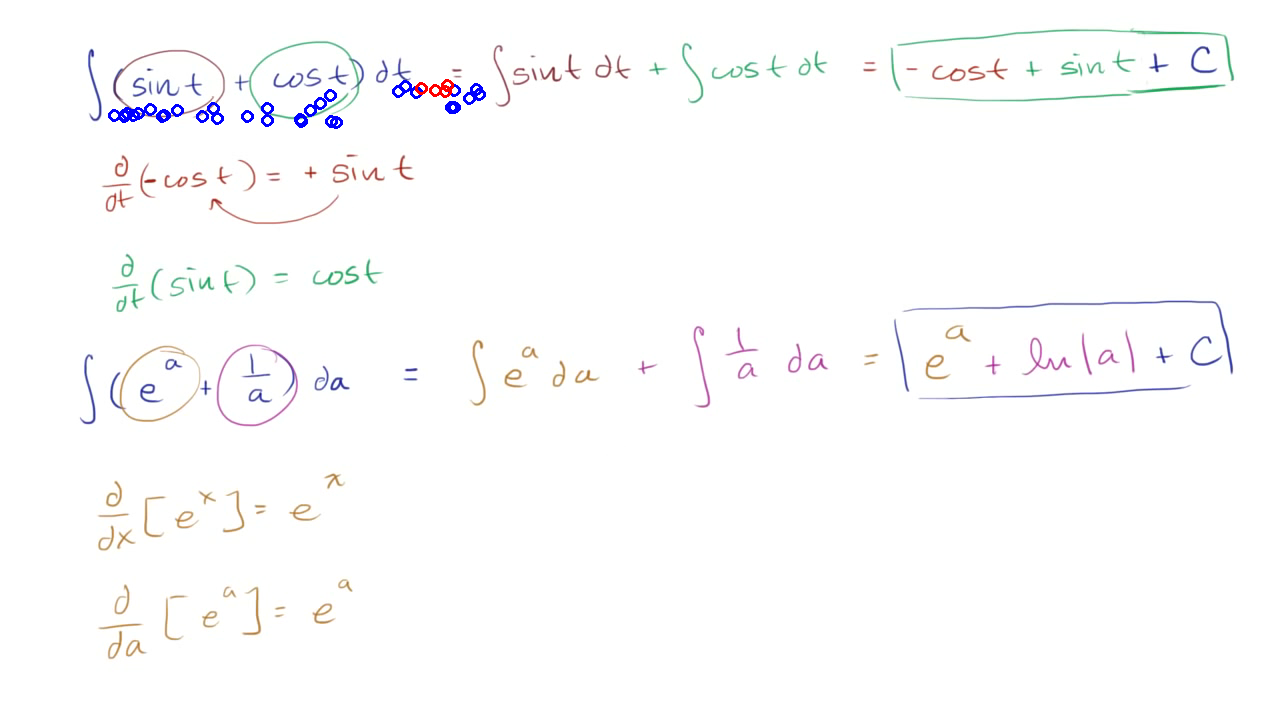 ∫(sin t + cos t) dt = ∫sin t dt + ∫cos t dt = - cos t + sin t + C
d/dt(-cos t) = + sin t
d/dt(sin t) = cos t
∫(e^a + 1/a) da = ∫e^a da + ∫1/a da = e^a + ln|a| + C
d/dx[e^x] = e^x
d/da[e^a] = e^a